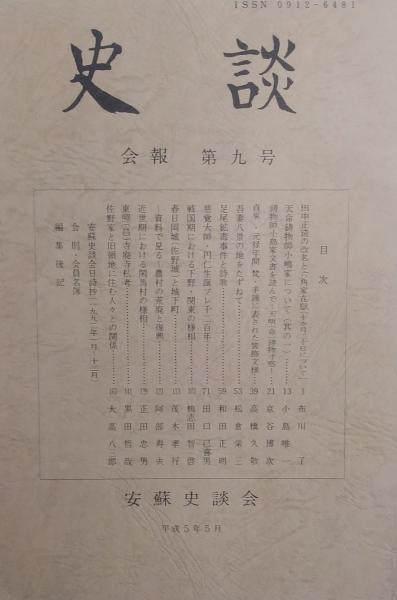 ISSN 0912-6481
史談
会報 第九号
目次
田中正造の改名と六角家在獄(十カ月二十日について) 1 布川 了
天命鋳物師小嶋家について(其の一) 13 小島 唯一
鋳物師小島家文書を読んで 21 京谷 博次
39 高橋 久敬
吾妻八景の地をたずねて 53 松倉 栄三
足尾鉱毒事件と詩歌 59 和田 正明
慈覚大師・円仁生誕プレ千二百年 71 田口 己喜男
戦国期における下野・関東の様相 桃田 智啓
春日岡城(佐野城)と城下町 茂木 孝行
―資料で見る―農村の荒廃と復興 阿部 寿夫
近世期における閑馬村の様相 正田 忠男
東照(四)寺廃寺私考 黒田 哲哉
佐野家と旧領地に住む人々との関係 大高 八三郎
安蘇史談会日誌抄(一九九二年一月~十二月)
会則・会員名簿
編集後記
安蘇史談会
平成5年5月